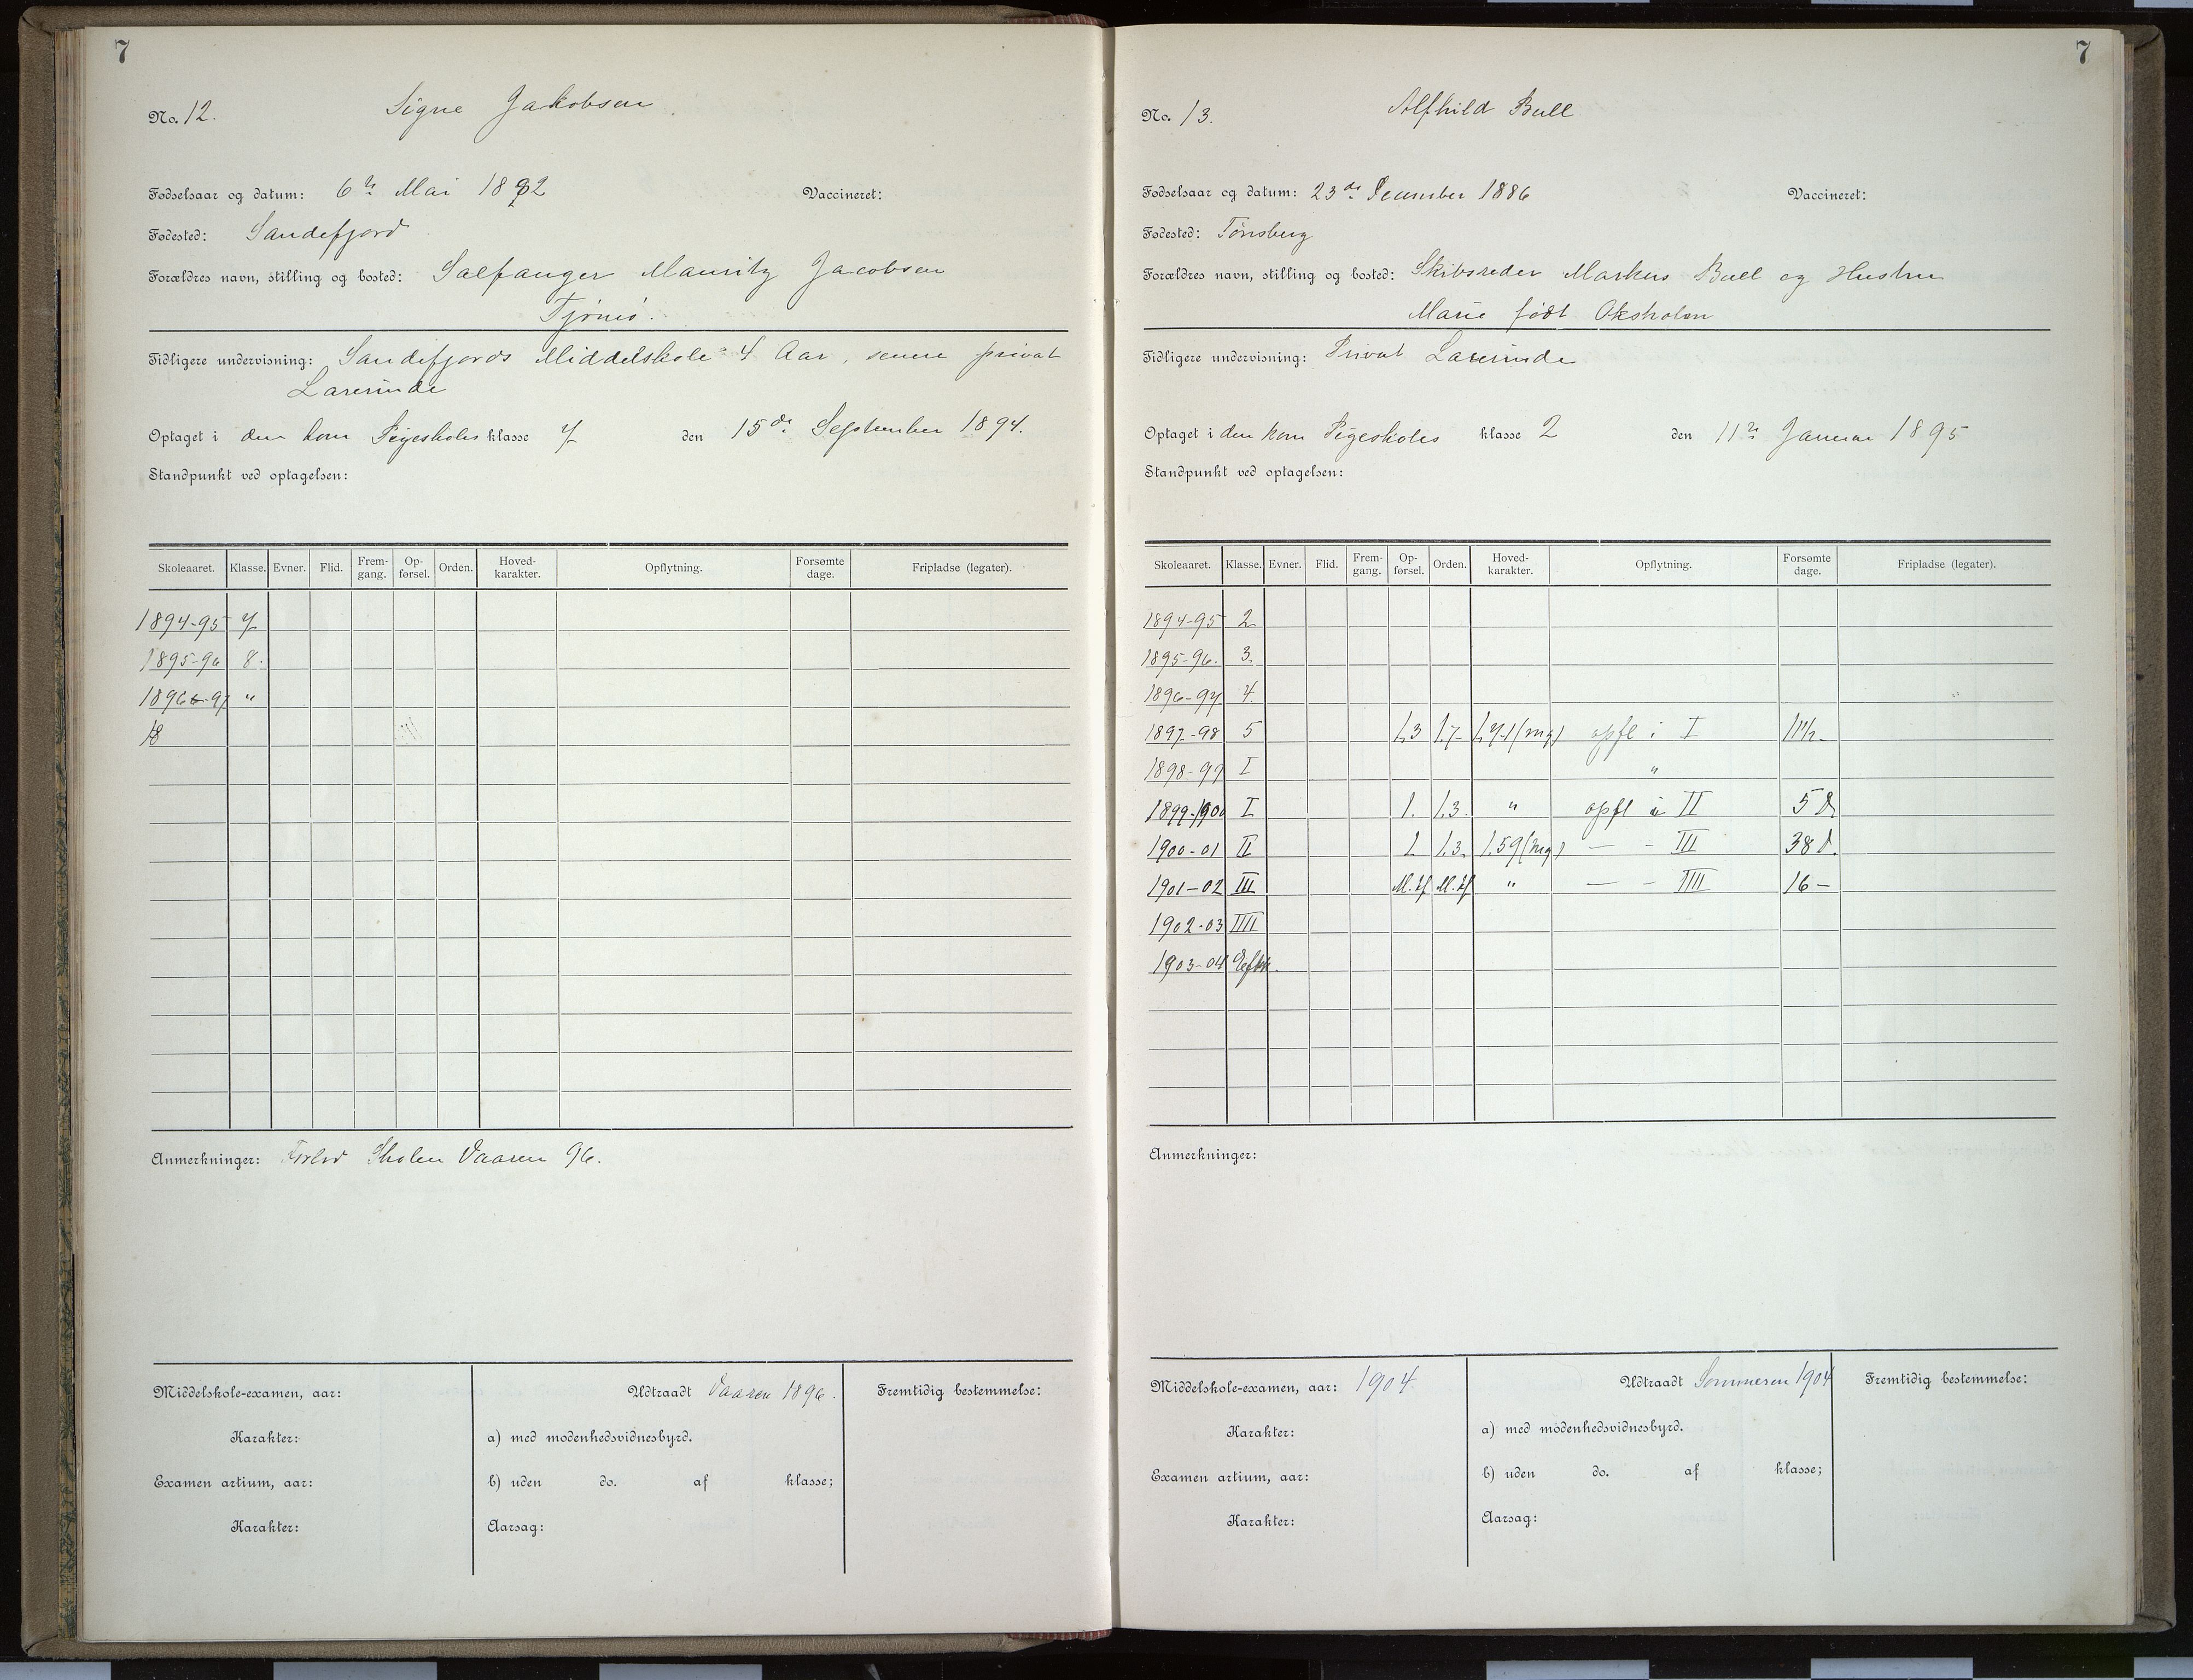 7
No. 12. Signe Jakobsen
Fødselsaar og datum: 6te Mai 1892 Vaccineret:
Fødested: Sandefjord
Forældres navn, stilling og bosted: Sælfanger Mauritz Jacobsen
Tjømø.
Tidligere undervisning: Sandefjords Middelskole 4 Aar, senere privat
Lærerinde
Optaget i den kom Pigeskoles klasse 7 den 15de September 1894.
Standpunkt ved optagelsen:
Skoleaaret. Klasse. Evner. Flid. Frem-gang. Op-førsel. Orden. Hoved-karakter. Opflytning. Forsømte dage. Fripladse (legater).
1894-95 7
1895-96 8.
1896-97 "
18
Anmerkninger: Forlod Skolen Vaaren 96.
Middelskole-examen, aar: Udtraadt Vaaren 1896. Fremtidig bestemmelse:
Karakter: a) med modenhedsvidnesbyrd.
Examen artium, aar: b) uden do. af klasse;
Karakter: Aarsag:
7
No. 13. Alfhild Bull
Fødselsaar og datum: 23de December 1886 Vaccineret:
Fødested: Tønsberg
Forældres navn, stilling og bosted: Skibsreder Markus Bull og Hustru
Marie født Oksholm
Tidligere undervisning: Privat Lærerinde
Optaget i den kom Pigeskoles klasse 2 den 11te Januar 1895
Standpunkt ved optagelsen:
Skoleaaret. Klasse. Evner. Flid. Frem-gang. Op-førsel. Orden. Hoved-karakter. Opflytning. Forsømte dage. Fripladse (legater).
1894-95 2
1895-96. 3.
1896-97 4.
1897-98 5 1,3 1,7 opfl i I 11½
1898-99 I "
1899-1900 I 1. 1.3. " opfl i II 5 d
1900-01 II 1 1.3. 1.59 (mg) — - III 38 d.
1901-02 III M.tf M.tf " — - IIII 16 —
1902-03 IIII
1903-04
Anmerkninger:
Middelskole-examen, aar: 1904. Udtraadt Sommeren 1904 Fremtidig bestemmelse:
Karakter: a) med modenhedsvidnesbyrd.
Examen artium, aar: b) uden do. af klasse;
Karakter: Aarsag: